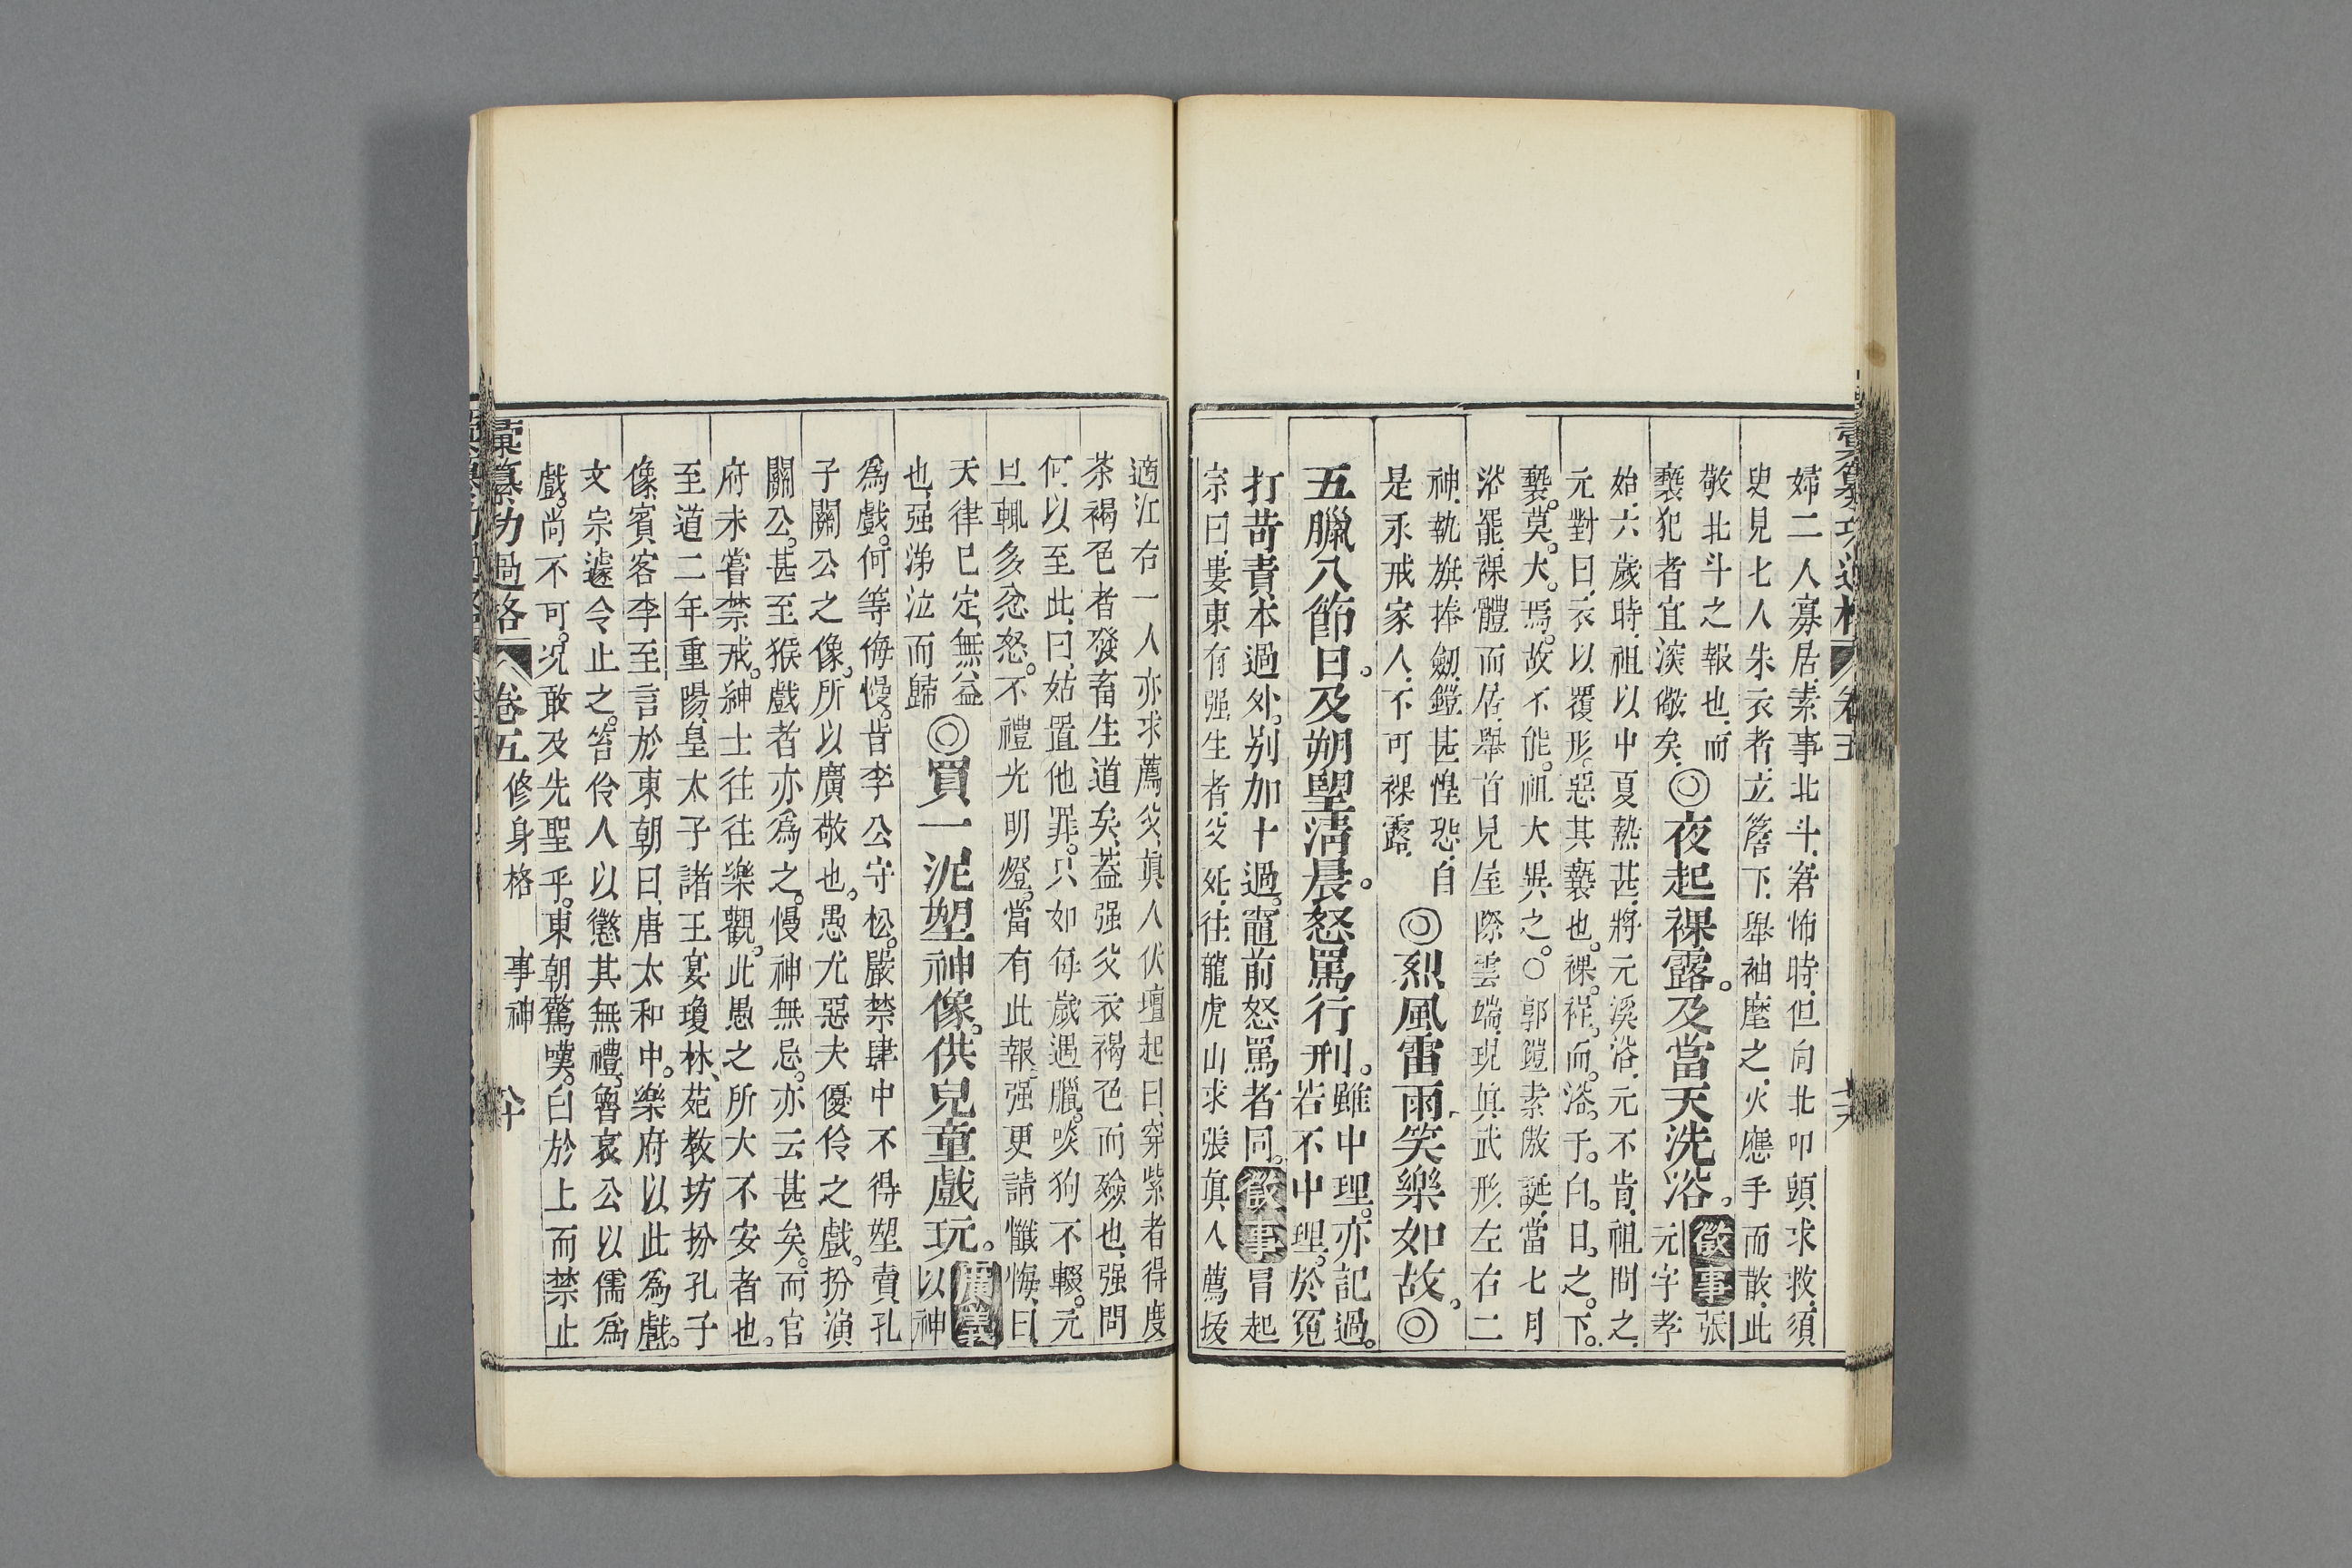 婦二人寡居素事北斗窘怖時但向北叩頭求救須
臾見七人朱衣者立簷下舉袖麾之火應手而散此
敬北斗之報也而
褻犯者宜深儆矣
◎夜起裸露。及當天洗浴。
徵事
張
元字孝
始六歲時祖以中夏熱甚將元溪浴元不肯祖問之
元對曰衣以覆形惡其褻也。裸。裎。而。浴。于。白。日。之。下。
褻。莫。大。焉。故不能。祖大異之。○郭鎧素傲誕當七月
浴罷裸體而居舉首見屋際雲端現真武形左右二
神執旗捧劒鎧甚惶恐自
是永戒家人不可裸露
◎烈風雷雨笑樂如故。◎
五臘八節日。及朔望淸晨。怒罵行刑。
雖中理。亦記過。
若不中理。於冤
打苛責本過外。别加十過。竈前怒罵者同。
徵事
冒起
宗曰婁東有强生者父死往龍虎山求張真人薦拔
適江右一人亦求薦父真人伏壇起曰穿紫者得度
茶褐色者發畜生道矣葢强父衣褐色而殮也强問
何以至此曰姑置他罪。只如每歲遇臘。啖狗不輟。元
旦輒多忿怒。不禮光明燈。當有此報强更請懺悔曰
天律已定無益
也强涕泣而歸
◎買一泥塑神像。供兒童戲玩。
廣義
以神
爲戲。何等侮慢。昔李公守松。嚴禁肆中不得塑賣孔
子關公之像。所以廣敬也。愚尤惡夫優伶之戲。扮演
關公。甚至猴戲者亦爲之。慢神無忌。亦云甚矣。而官
府未嘗禁戒。紳士往往樂觀。此愚之所大不安者也。
至道二年重陽皇太子諸王宴瓊林苑教坊扮孔子
像賓客李至言於東朝曰唐太和中。樂府以此爲戲。
文宗遽令止之。笞伶人以懲其無禮。魯哀公以儒爲
戲。尚不可。况敢及先聖乎。東朝驚嘆。白於上而禁止
彙纂功過格 卷五 修身格 事神 八十